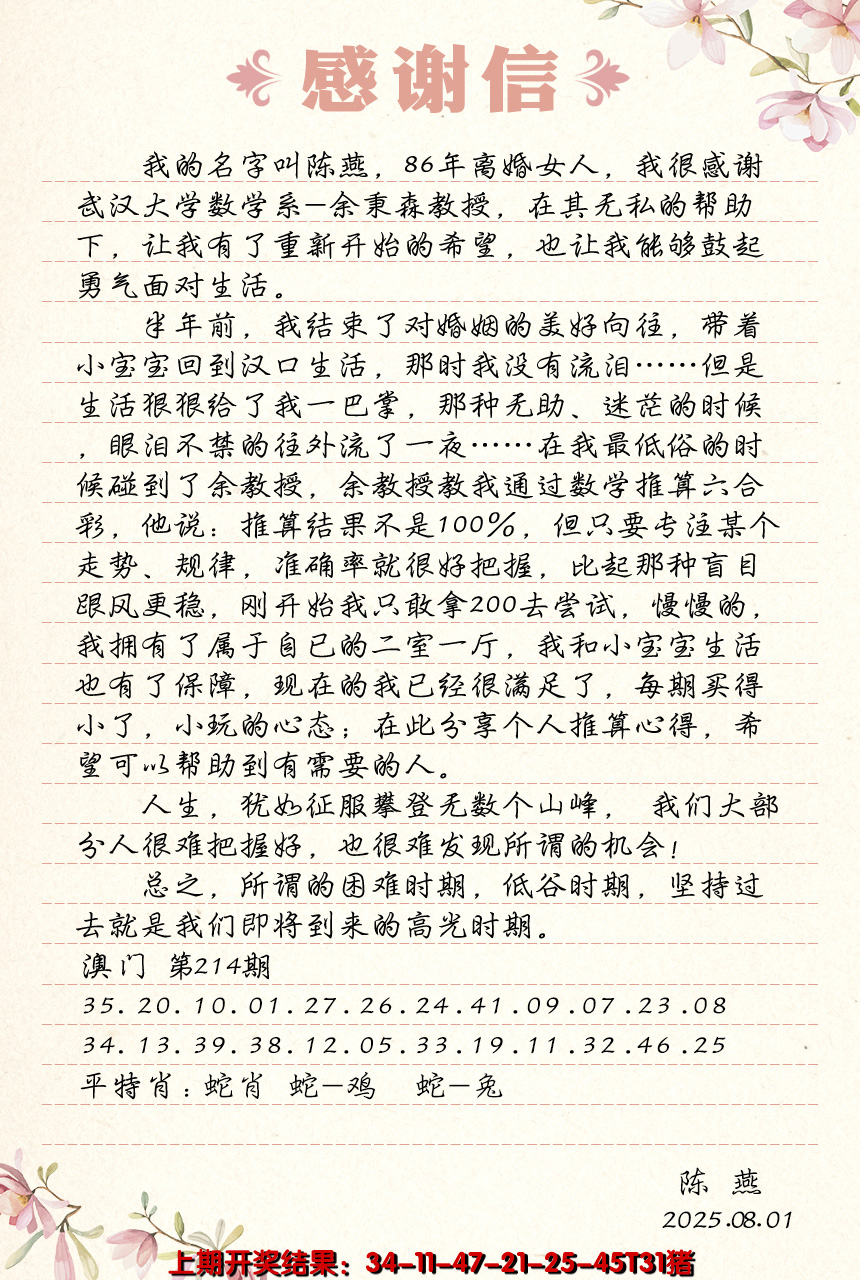 感谢信
我的名字叫陈燕，86年离婚女人，我很感谢
武汉大学数学系-余秉森教授，在其无私的帮助
下，让我有了重新开始的希望，也让我能够鼓起
勇气面对生活。
半年前，我结束了对婚姻的美好向往，带着
小宝宝回到汉口生活，那时我没有流泪……但是
生活狠狠给了我一巴掌，那种无助、迷茫的时候
，眼泪不禁的往外流了一夜……在我最低俗的时
候碰到了余教授，余教授教我通过数学推算六合
彩，他说：推算结果不是100%，但只要专注某个
走势、规律，准确率就很好把握，比起那种盲目
跟风更稳，刚开始我只敢拿200去尝试，慢慢的，
我拥有了属于自已的二室一厅，我和小宝宝生活
也有了保障，现在的我已经很满足了，每期买得
小了，小玩的心态；在此分享个人推算心得，希
望可以帮助到有需要的人。
人生，犹如征服攀登无数个山峰， 我们大部
分人很难把握好，也很难发现所谓的机会！
总之，所谓的困难时期，低谷时期，坚持过
去就是我们即将到来的高光时期。
澳门 第214期
35.20.10.01.27.26.24.41.09.07.23.08
34.13.39.38.12.05.33.19.11.32.46.25
平特肖：蛇肖 蛇-鸡 蛇-兔
陈 燕
2025.08.01
上期开奖结果：34-11-47-21-25-45T31猪